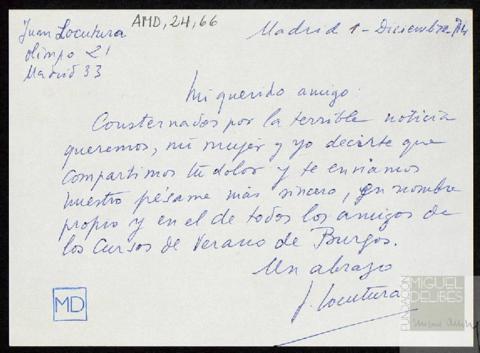 Juan Locutura
Olimpo 21
Madrid 33
AMD, 24, 66
Madrid 1 - Diciembre-74
Mi querido amigo:
Consternados por la terrible noticia
queremos, mi mujer y yo decirte que
compartimos tu dolor y te enviamos
nuestro pésame más sincero, en nombre
propio y en el de todos los amigos de
los Cursos de Verano de Burgos.
Un abrazo
J. Locutura
MD
FUNDACIÓN
MIGUEL
DELIBES